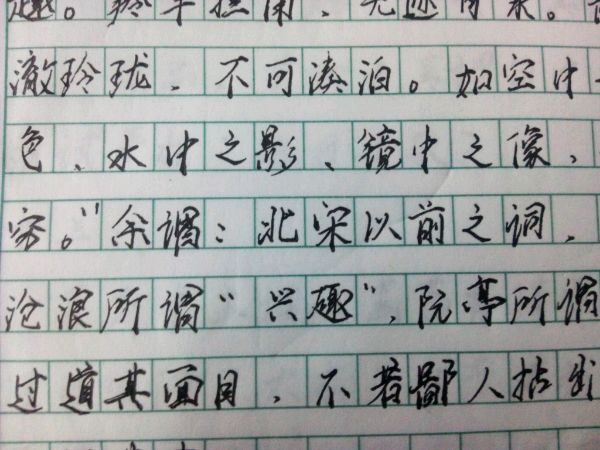 趣。羚羊挂角、无迹可求。
澈玲珑、不可凑泊。如空中
色、水中之影、镜中之像、
穷。"余谓：北宋以前之词、
沧浪所谓"兴趣"，阮亭所谓
过道其面目、不若鄙人拈出